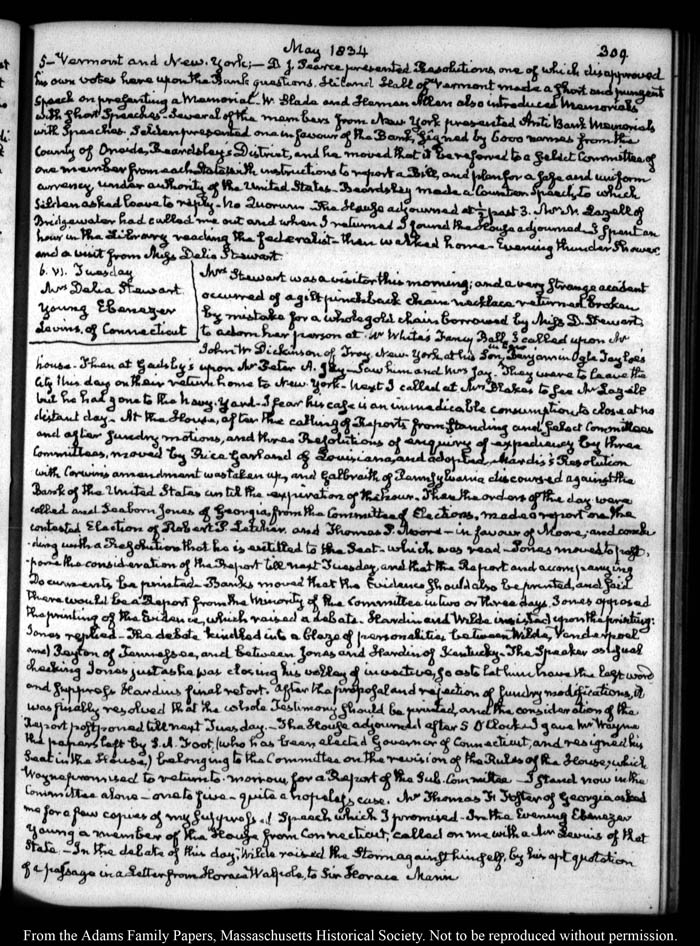 May 1834
309
5 - Vermont and New-York; - D. J. Pearce presented Resolutions, one of which disapproved
his own votes here upon the Bank questions. Hiland Hall of Vermont made a short and pungent
Speech on presenting a Memorial. W. Slade and Heman Allen also introduced Memorials
with short Speeches. Several of the members from New York presented Anti Bank Memorials
with Speeches. Selden presented one in favour of the Bank, signed by 6000 names from the
County of Oneida, Beardsley's District, and he moved that it be referred to a Select Committee of
one member from each State with instructions to report a Bill, and plan for a safe and uniform
currency, under authority of the United States - Beardsley made a Counter Speech, to which
Selden asked leave to reply - No Quorum - The House adjourned at ½ past 3. Mr N. Lazell of
Bridgewater had called me out and when I returned I found the House adjourned. I spent an
hour in the Library reading the federalist - then walked home - Evening thunder shower
and a visit from Miss Delia Stewart.
6. VI. Tuesday
Mrs Delia Stewart
Young Ebenezer
Levins, of Connecticut
Mrs Stewart was a visitor this morning; and a very strange accident
occurred of a gilt pinchback chain necklace returned broken
by mistake for a whole gold chain borrowed by Miss D. Stewart
to adorn her person at Mr White's Fancy Ball. I called upon Mr
John D. Dickinson of Troy, New York, at his Son in Law Benjamin Ogle Tayloe's
house - Then at Gadsby's upon Mr Peter A. Jay - Saw him and Mrs Jay. They were to leave the
City this day on their return home to New York - Next I called at Mrs Blake's to see Mr Lazell
but he had gone to the Navy-Yard - I fear his case is an immedicable consumption, to close at no
distant day - At the House, after the calling of Reports from Standing and Select Committees
and after sundry motions, and three Resolutions of enquiry of expediency by three
Committees, moved by Rice Garland of Louisiana, and adopted, Mardis's Resolution
with Corwin's amendment was taken up, and Galbraith of Pennsylvania discoursed against the
Bank of the United States until the expiration of the hour. Then the orders of the day were
called and Seaborn Jones of Georgia, from the Committee of Elections, made a report on the
contested Election of Robert P. Letcher, and Thomas P. Moore - in favour of Moore; and conclu-
-ding with a Resolution that he is entitled to the Seat - which was read - Jones moved to post-
-pone the consideration of the Report till next Tuesday, and that the Report and accompanying
Documents be printed - Banks moved that the Evidence should also be printed, and said
there would be a Report from the Minority of the Committee in two or three days. Jones opposed
the printing of the Evidence, which raised a debate. Hardin and Wilde insisted upon the printing:
Jones replied - The debate kindled into a blaze of personalities between Wilde, Vanderpoel
and Peyton of Tennessee, and between Jones and Hardin of Kentucky - The Speaker as usual
checking Jones just as he was closing his volley of invective, so as to let him have the last word
and suppress Hardin's final retort. After the proposal and rejection of sundry modifications, it
was finally resolved that the whole Testimony should be printed, and the consideration of the
Report postponed till next Tuesday. - The House adjourned after 5 O'Clock - I gave Mr Wayne
the papers left by S. A. Foot, (who has been elected Governor of Connecticut, and resigned his
Seat in the House,) belonging to the Committee on the revision of the Rules of the House; which
Wayne promised to return to-morrow, for a Report of the Sub-Committee - I stand now in the
Committee alone - one to five - quite a hopeless case. Mr Thomas F. Foster of Georgia asked
me for a few copies of my suppressed Speech which I promised - In the Evening Ebenezer
Young a member of the House from Connecticut, called on me with a Mr Levins of that
State - In the debate of this day, Wilde raised the Storm against himself, by his apt quotation
of a passage in a Letter from Horace Walpole, to Sir Horace Mann
From the Adams Family Papers, Massachusetts Historical Society. Not to be reproduced without permission.